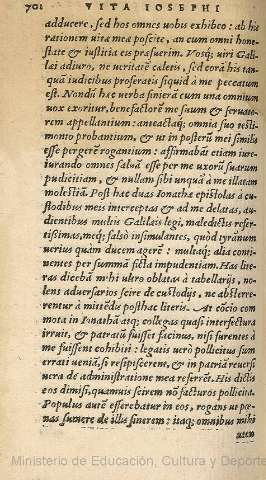 702 VITA IOSEPHI
adducere, sed hos omnes uobis exhibeo: ab his
rationem uitæ meæ poscite, an cum omni hone-
state & iustitia eis præfuerim. Vosq; uiri Gali
læi adiuro, ne ueritatē celetis, sed corā his tan-
quā iudicibus proferatis siquid à me peccatum
est. Nondū hæc uerba finierā cum una omnium
uox exoritur, benefactorē me suum & seruato-
rem appellantium: anteactaq; omnia suo testi
monio probantium, & ut in posterū mei similis
esse pergerē rogantium: affirmabāt etiam iure-
iurando omnes saluā esse per me uxorū suarum
pudicitiam, & nullam sibi unquā à me illatam
molestiā. Post hæc duas Ionathæ epistolas à cu-
stodibus meis interceptas & ad me delatas, au-
dientibus multis Galilæis legi, maledictis refer-
tissimas, meq; falsò insimulantes, quòd tyrānum
uerius quàm ducem agerē: multaq; alia conti-
nentes per summā ficta impudentiam. Has lite
ras dicebā mihi ultro oblatas à tabellarijs, no-
lens aduersarios scire de custodijs, ne absterre-
rentur à mittēdis posthac literis. At cōcio com
mota in Ionathā atq; collegas quasi interfectura
irruit, & patratū fuisset facinus, nisi furentes à
me fuissent cohibiti: legatis uerò pollicitus sum
errati ueniā, si resipiscerent, & in patriā reuersi
uera de administratione mea referrēt. His dictis
eos dimisi, quamuis scirem nō facturos pollicita.
Populus autē efferebatur in eos, rogans ut pœ-
nas sumere de illis sinerem: itaq; omnibus mihi
Ministerio de Educación, Cultura y Deporte